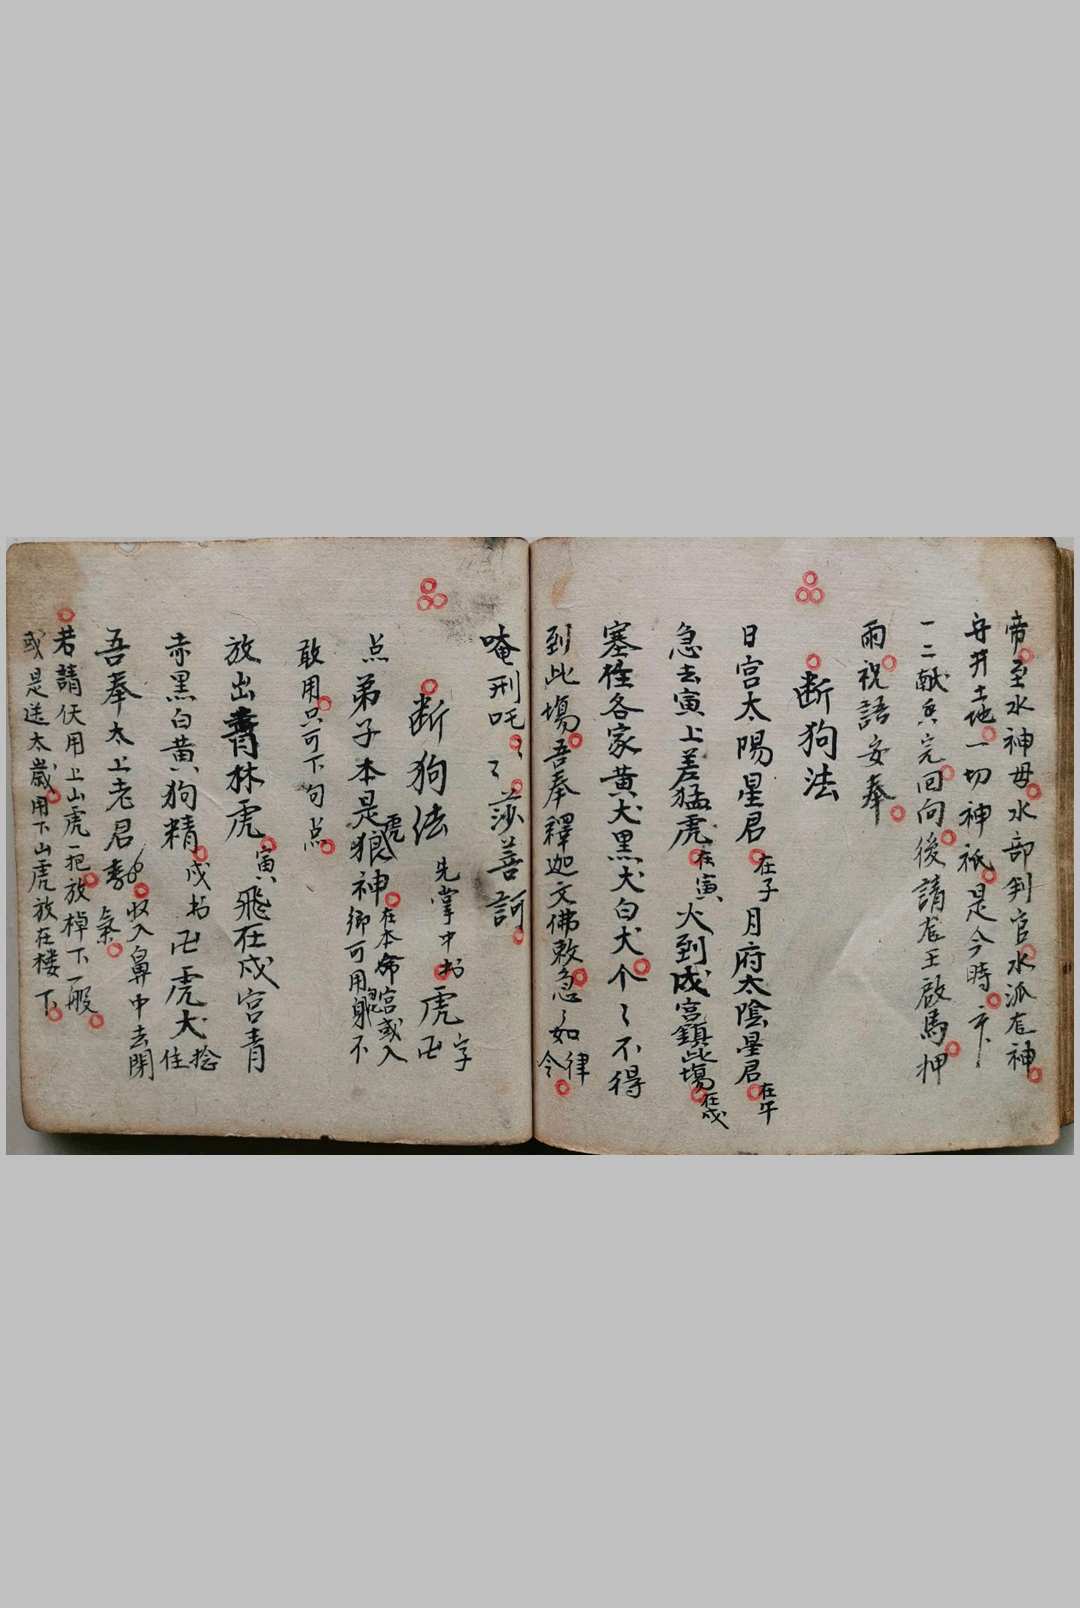 帝至水神母水部判官水派龙神
守井土地一切神祇是今時下
一二献兵完回向後請龙王啟馬押
兩祝語安奉
断狗法
日宮太陽星君在子月府太陰星君在午
急去寅上差猛虎在寅火到戍宮鎮此塲在戍
塞徃各家黄犬黑犬白犬个〻不得
到此塲吾奉釋迦文佛敕急〻如律令
唵刑吒〻〻莎菩訶
断狗法 先掌中书虎字卍
点弟子本是狼虎神在本命宮或入
鄉可用躬不
敢用只可下句点
放出青林虎寅飛在戍宮青
赤黑白黄狗精戍书卍虎犬捻住
吾奉太上老君
収入鼻中去閉氣
若請伏用上山虎一把放棹下一般
或是送太歲用下山虎放在楼下